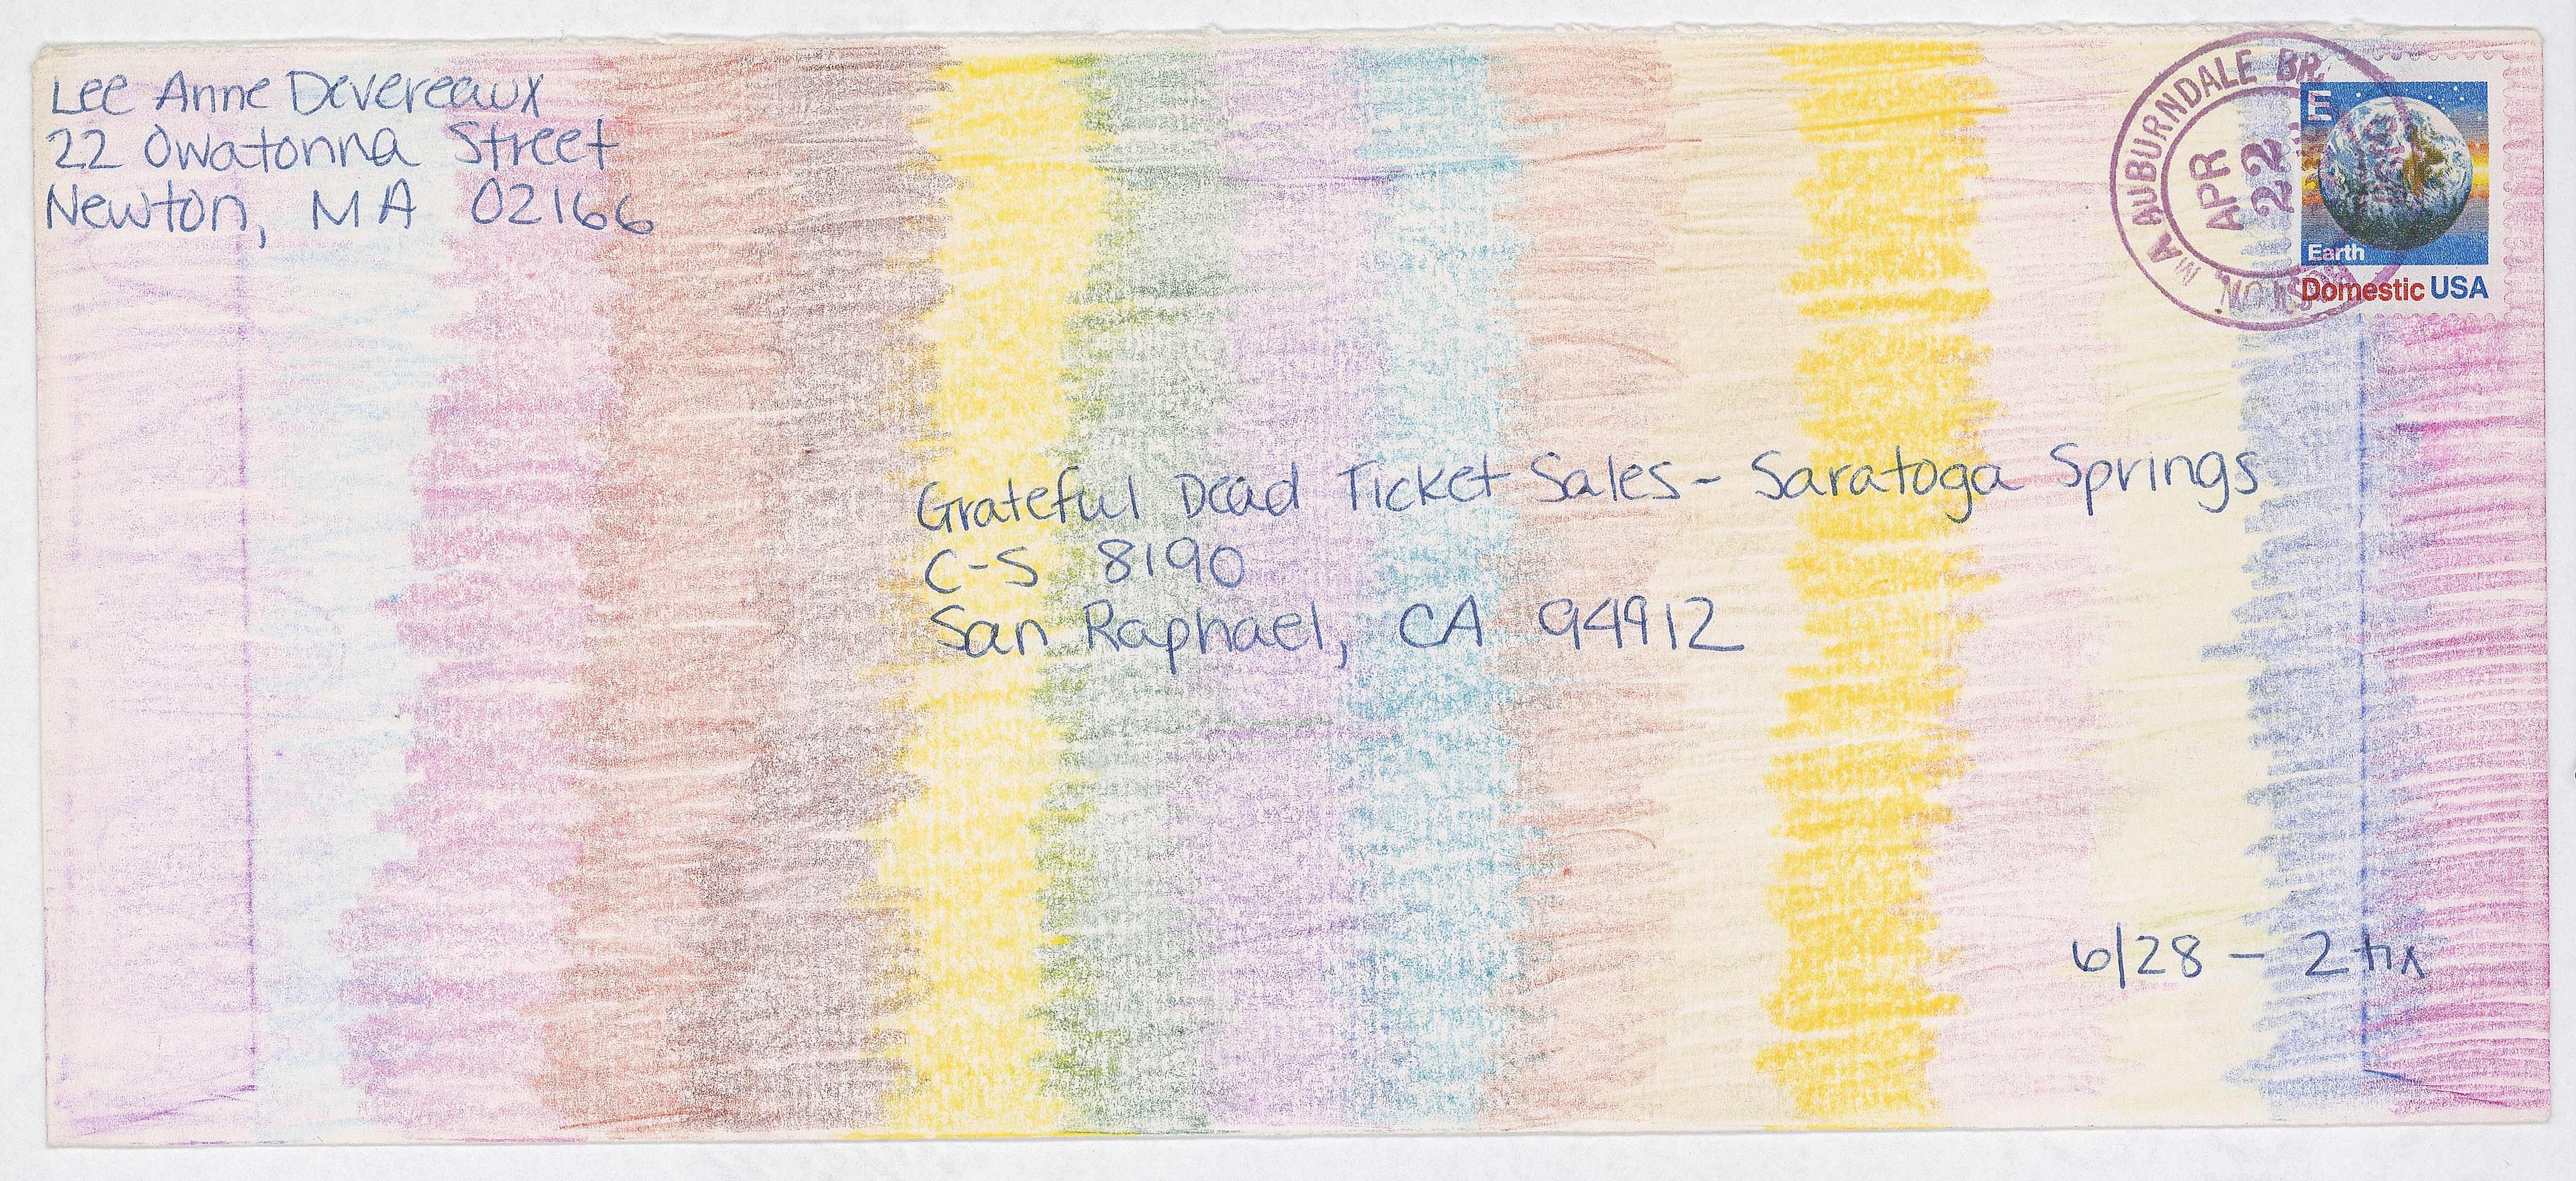 Lee Anne Devereaux
22 Owatonna Street
Newton, MA 02166
MA AUBURNDALE BR.
APR
22
BOSTON,
E
Earth
Domestic USA
Grateful Dead Ticket Sales - Saratoga Springs
C-S 8190
San Raphael, CA 94912
6/28 - 2 tix